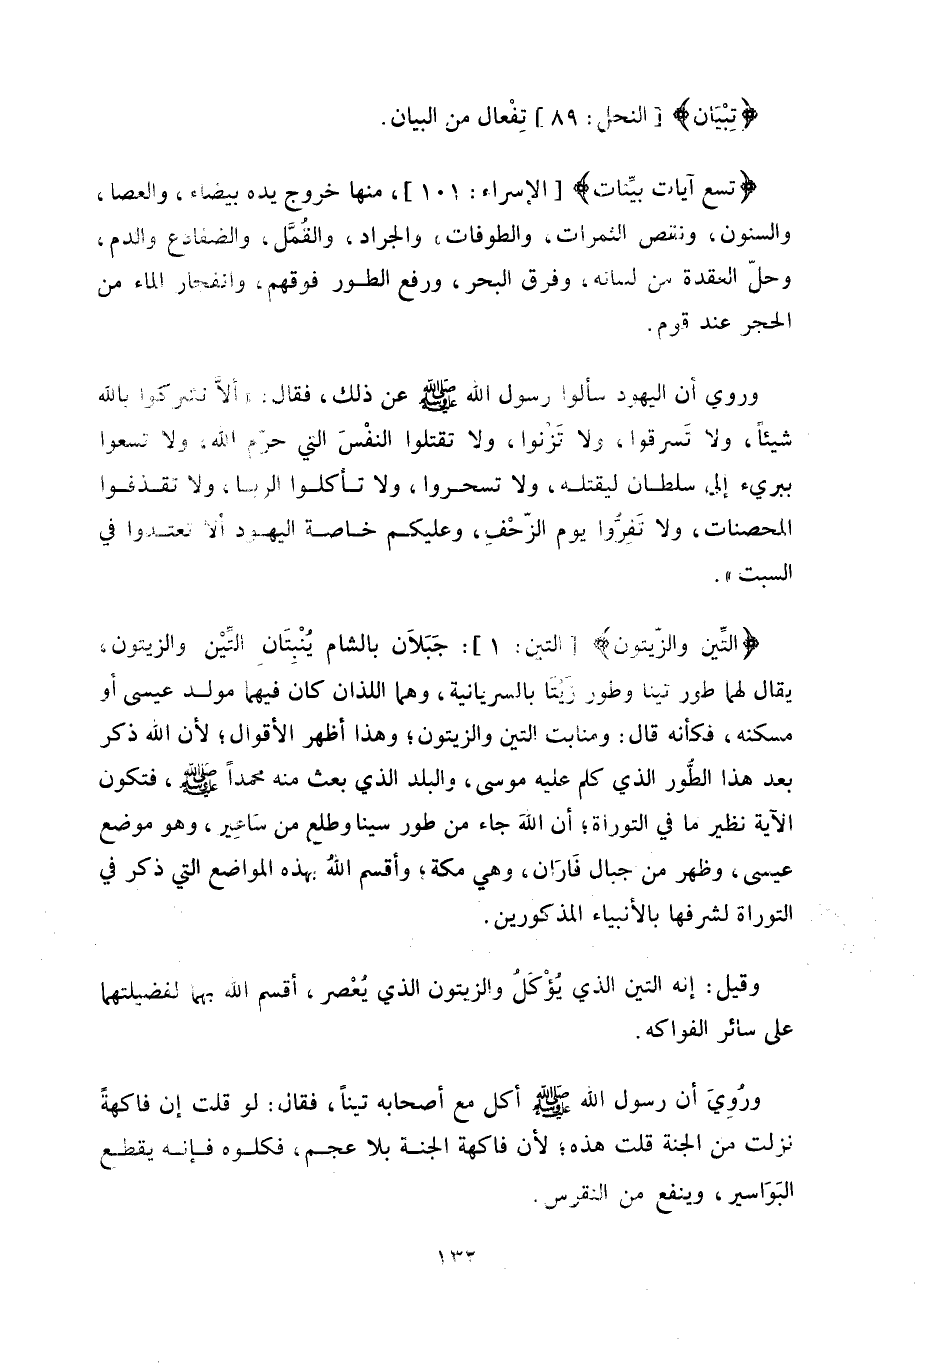 ﴿تِبْيَان﴾ [النحل: ٨٩] تِفْعال من البيان.
﴿تسع آيات بيِّنات﴾ [الإسراء: ١٠١]، منها خروج يده بيضاء، والعصا،
والسنون، ونقص الثمرات، والطوفات، والجراد، والقُمَّل، والضفادع والدم،
وحلّ العقدة من لسانه، وفرق البحر، ورفع الطور فوقهم، وانفجار الماء من
الحجر عند قوم.
وروي أن اليهود سألوا رسول الله ﷺ عن ذلك، فقال: «ألاَّ تشركوا بالله
شيئاً، ولا تَسرقوا، ولا تَزْنوا، ولا تقتلوا النفْسَ التي حرّم الله، ولا تسعوا
ببريء إلى سلطان ليقتله، ولا تسحروا، ولا تأكلوا الربا، ولا تقذفوا
المحصنات، ولا تَفِرُّوا يوم الزّحْفِ، وعليكم خاصة اليهود ألا تعتدوا في
السبت».
﴿التِّين والزّيتون﴾ [التين: ١]: جَبَلاَن بالشام يُنْبِتَان التِّيْن والزيتون،
يقال لهما طور تينا وطور زَيْتَا بالسريانية، وهما اللذان كان فيهما مولد عيسى أو
مسكنه، فكأنه قال: ومنابت التين والزيتون؛ وهذا أظهر الأقوال؛ لأن الله ذكر
بعد هذا الطُّور الذي كلم عليه موسى، والبلد الذي بعث منه محمداً ﷺ، فتكون
الآية نظير ما في التوراة؛ أن اللهَ جاء من طور سينا وطلع من سَاعِير، وهو موضع
عيسى، وظهر من جبال فَارَان، وهي مكة؛ وأقسم اللهُ بهذه المواضع التي ذكر في
التوراة لشرفها بالأنبياء المذكورين.
وقيل: إنه التين الذي يُؤْكَلُ والزيتون الذي يُعْصر، أقسم الله بهما لفضيلتهما
على سائر الفواكه.
ورُوِيَ أن رسول الله ﷺ أكل مع أصحابه تيناً، فقال: لو قلت إن فاكهةً
نزلت من الجنة قلت هذه؛ لأن فاكهة الجنة بلا عجم، فكلوه فإنه يقطع
البَوَاسير، وينفع من النقرس.
١٣٣